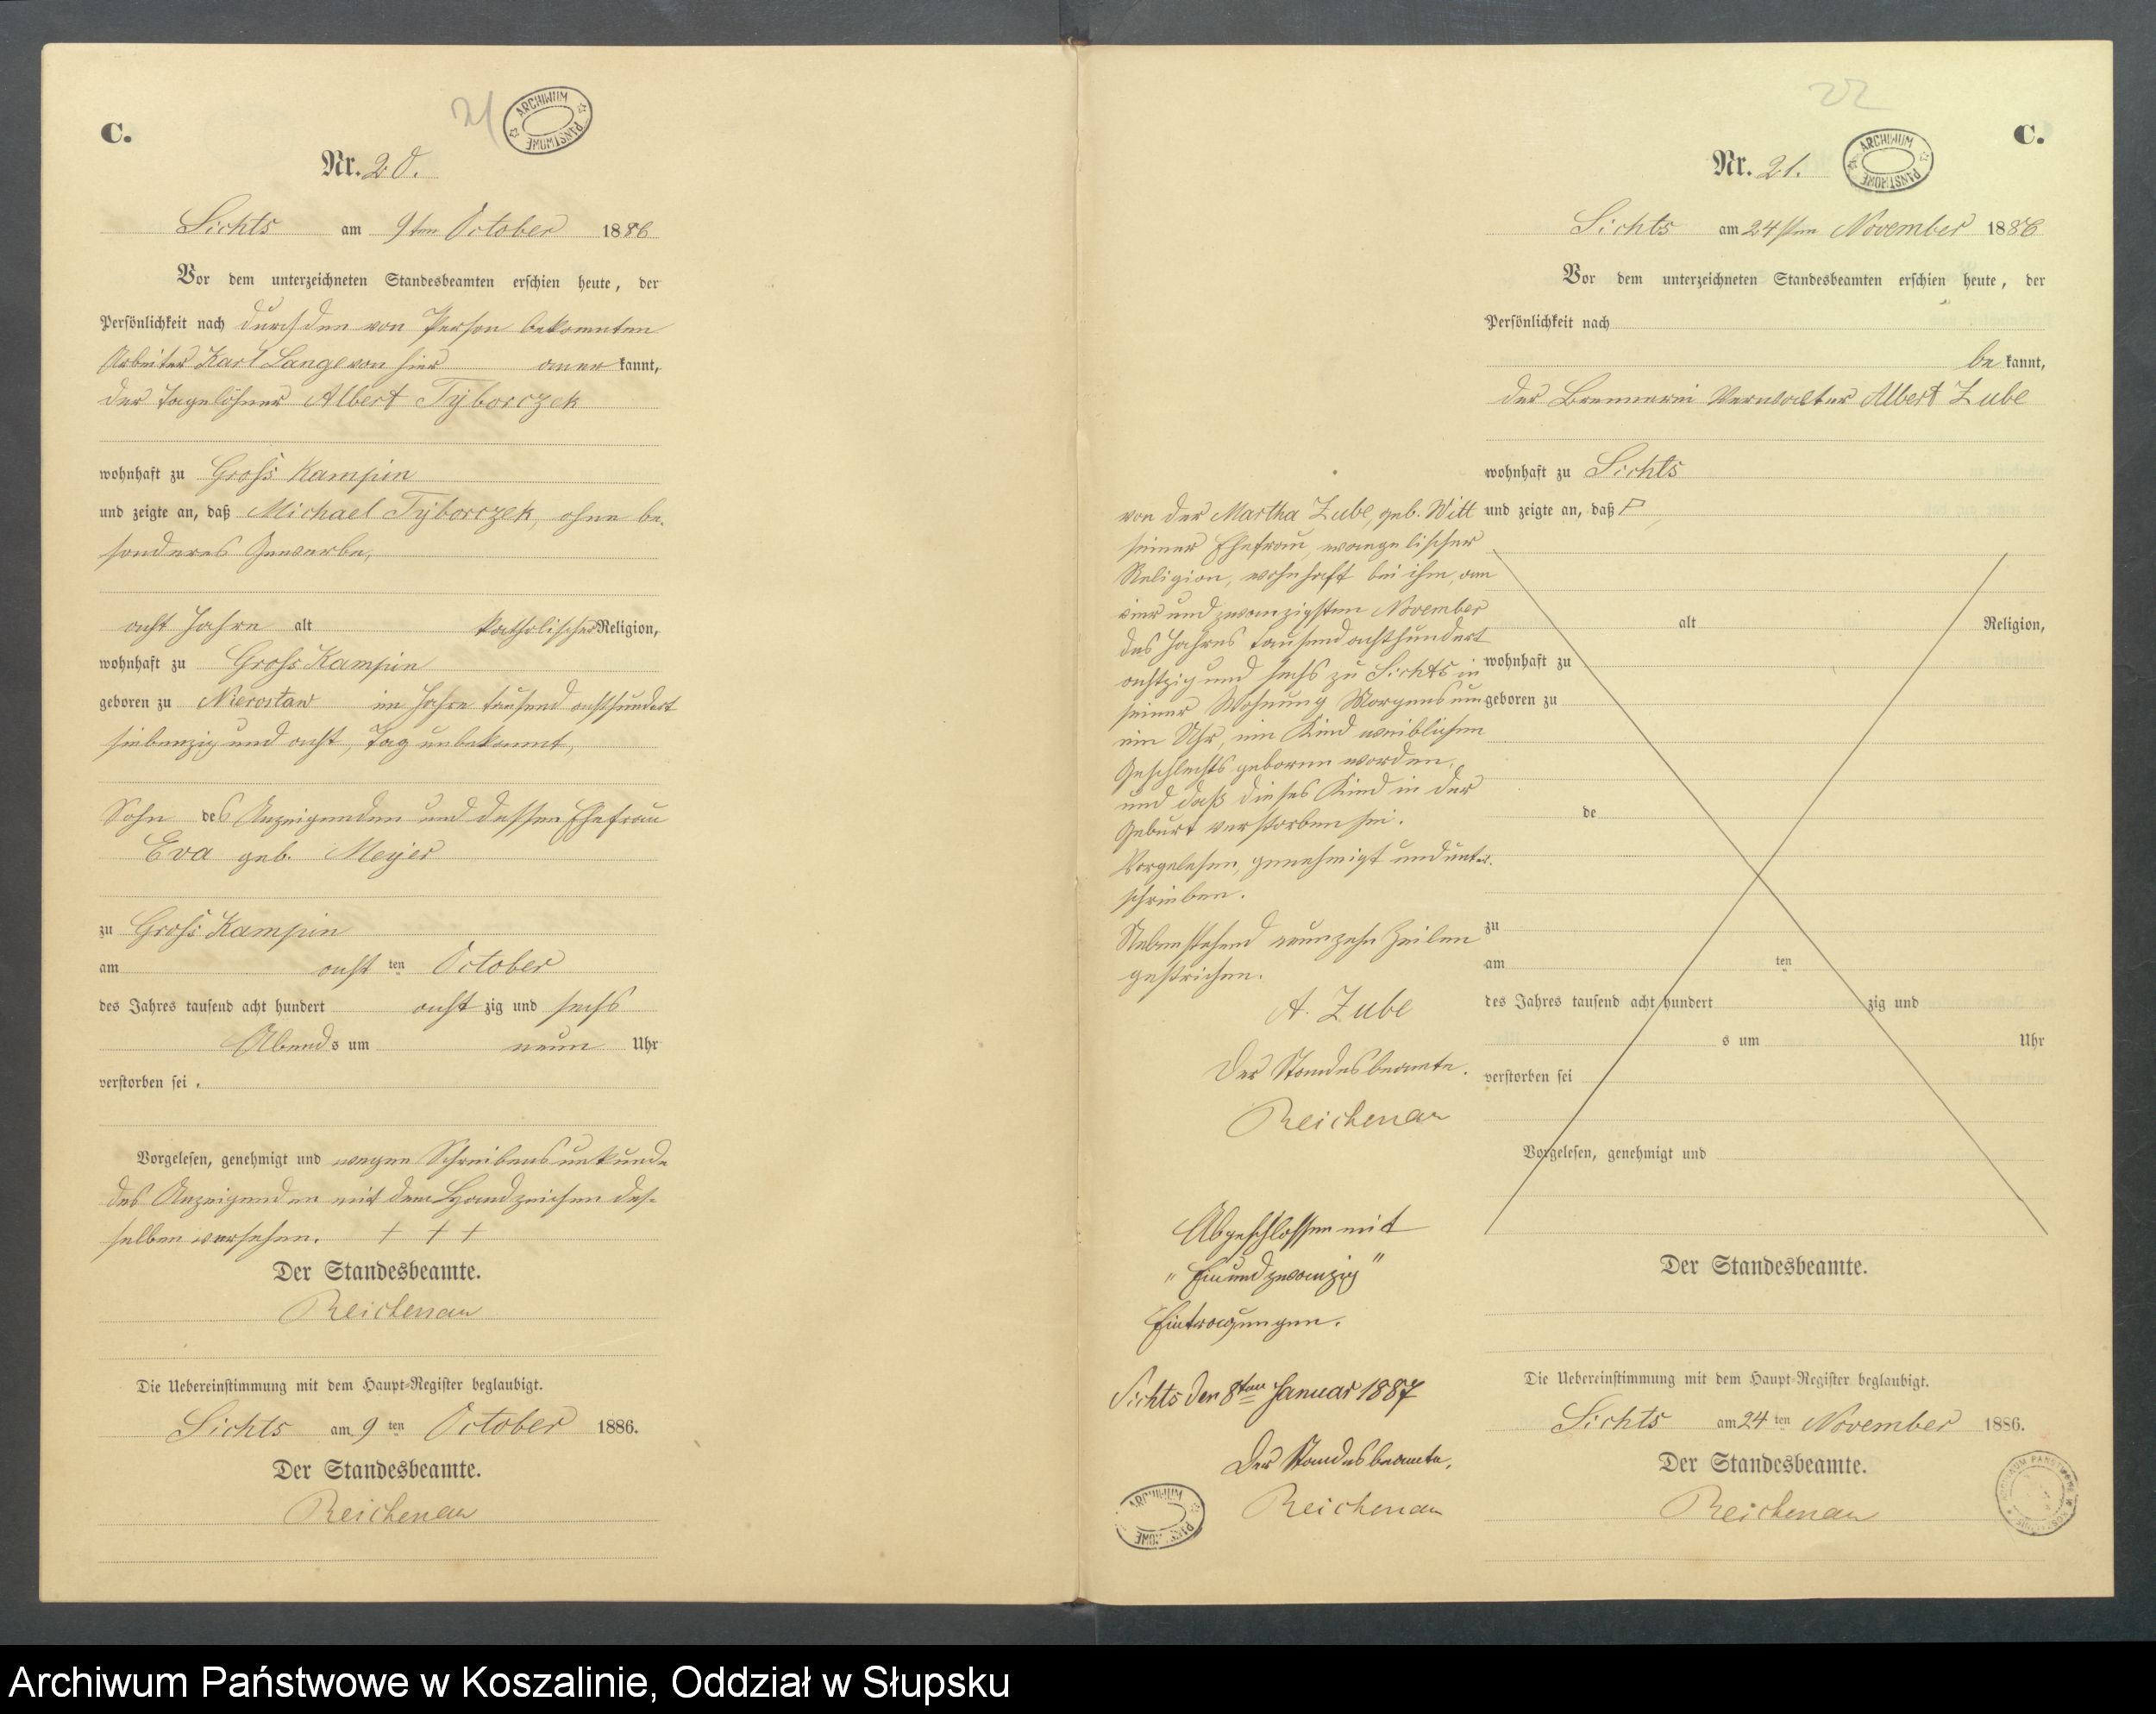 21
ARCHIWUM PAŃSTWOWE
C.
Nr. 20.
Sichts am 9ten October 1886
Vor dem unterzeichneten Standesbeamten erschien heute, der
Persönlichkeit nach durch den von Person bekannten
Arbeiter Karl Lange von hier anerkannt,
der Tagelöhner Albert Tyborczek
wohnhaft zu Groß Kampin
und zeigte an, daß Michael Tyborczek, ohne be-
sonderes Gewerbe,
acht Jahre alt katholischer Religion,
wohnhaft zu Groß Kampin
geboren zu Nierostaw im Jahre tausend achthundert
siebenzig und acht, Tag unbekannt,
Sohn des Anzeigenden und dessen Ehefrau
Eva geb. Meyer
zu Groß Kampin
am acht ten October
des Jahres tausend acht hundert achtzig und sechs
Abends um neun Uhr
verstorben sei.
Vorgelesen, genehmigt und wegen Schreibensunkunde
des Anzeigenden mit dem Handzeichen des-
selben versehen. + + +
Der Standesbeamte.
Reichenau
Die Uebereinstimmung mit dem Haupt-Register beglaubigt.
Sichts am 9ten October 1886.
Der Standesbeamte.
Reichenau
22
C.
Nr. 21.
ARCHIWUM PAŃSTWOWE
Sichts am 24sten November 1886
Vor dem unterzeichneten Standesbeamten erschien heute, der
Persönlichkeit nach
bekannt,
der Brennerei Verwalter Albert Zube
wohnhaft zu Sichts
und zeigte an, daß
von der Martha Zube, geb. Witt
seiner Ehefrau, evangelischer
Religion, wohnhaft bei ihm, am
vier und zwanzigsten November
des Jahres tausend achthundert
achtzig und sechs zu Sichts in
seiner Wohnung Morgens um
ein Uhr, ein Kind weiblichen
Geschlechts geboren worden,
und daß dieses Kind in der
Geburt verstorben sei.
Vorgelesen, genehmigt und unter-
schrieben.
Nebenstehend neunzehn Zeilen
gestrichen.
A. Zube
Der Standesbeamte.
Reichenau
Abgeschlossen mit
"Einundzwanzig"
Eintragungen.
Sichts den 8ten Januar 1887
Der Standesbeamte.
Reichenau
ARCHIWUM PAŃSTWOWE
alt Religion,
wohnhaft zu
geboren zu
de
zu
am ten
des Jahres tausend acht hundert zig und
s um Uhr
verstorben sei
Vorgelesen, genehmigt und
Der Standesbeamte.
Die Uebereinstimmung mit dem Haupt-Register beglaubigt.
Sichts am 24ten November 1886.
Der Standesbeamte.
Reichenau
Archiwum Państwowe w Koszalinie, Oddział w Słupsku